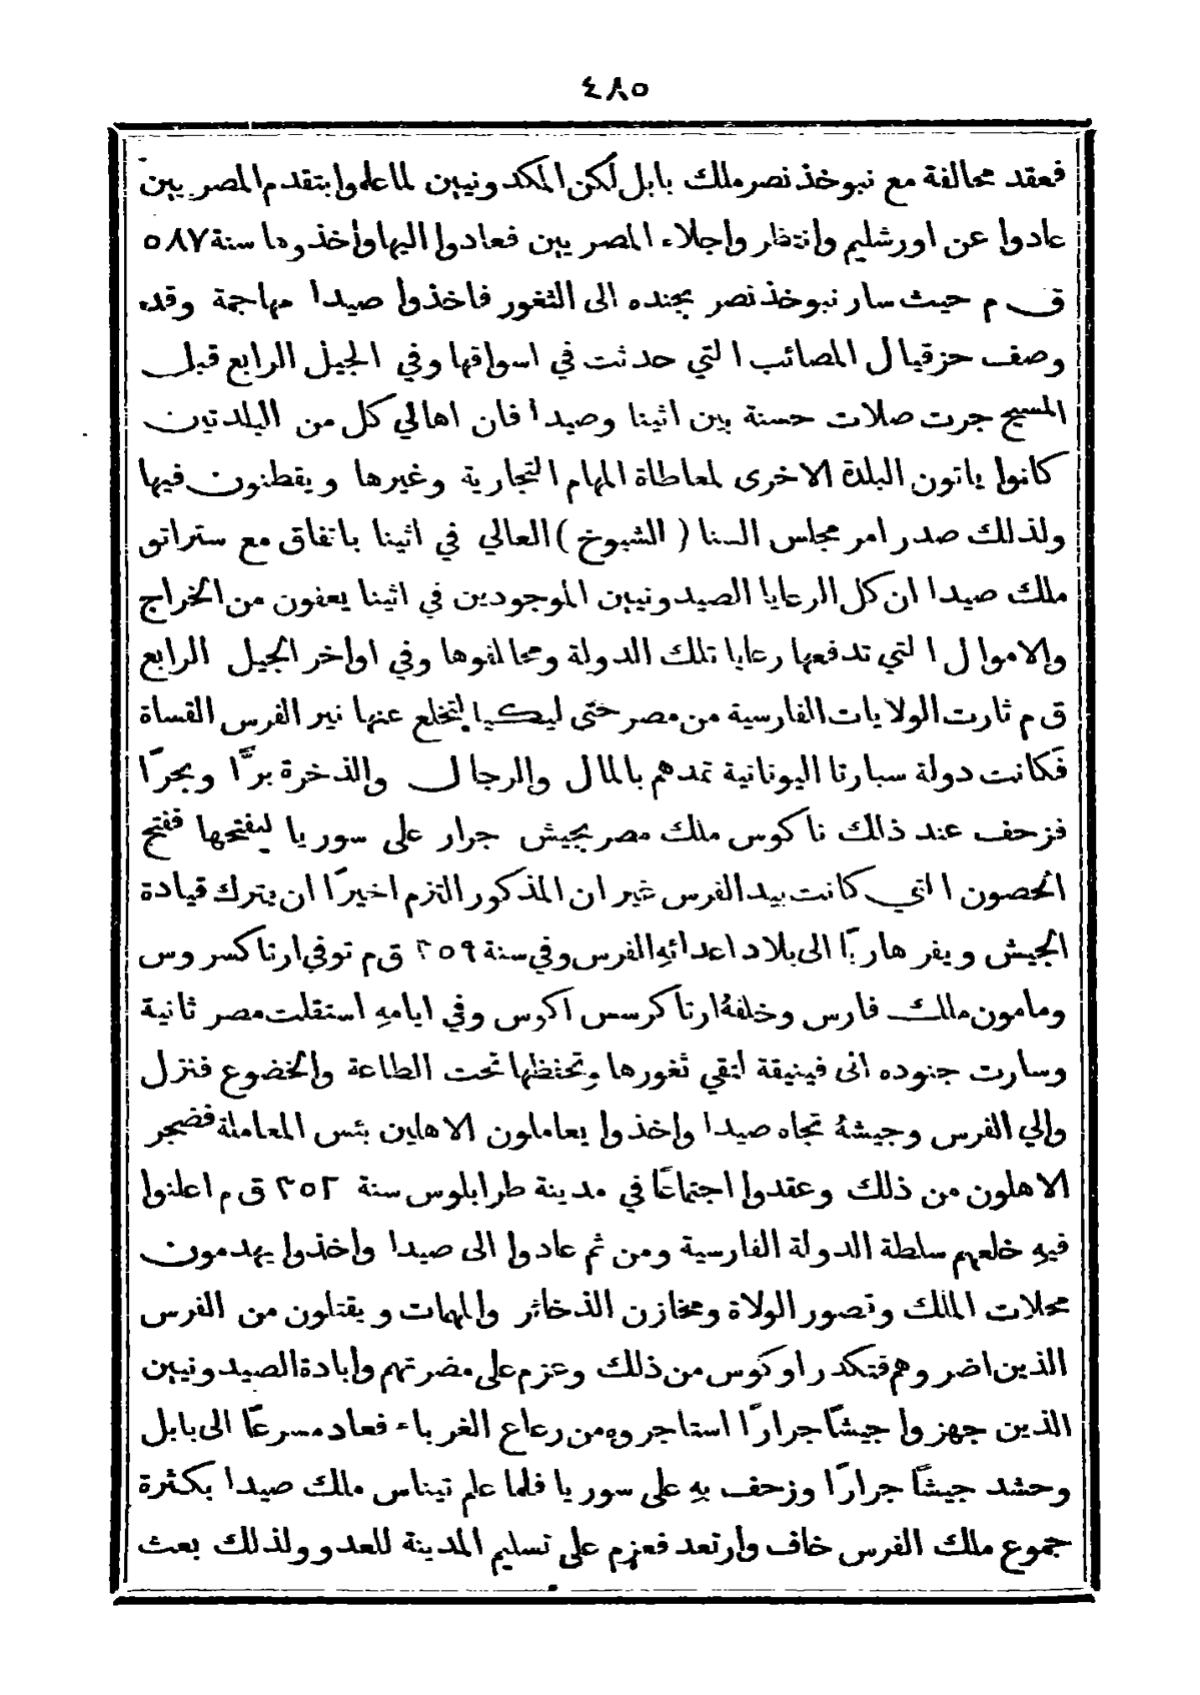 ٤٨٥
فعقد محالفة مع نبوخذ نصر ملك بابل لكن المكدونيين لما علموا بتقدم المصريين
عادوا عن اورشليم وانتظار واجلاء المصريين فعادوا اليها واخذوها سنة ٥٨٧
ق م حيث سار نبوخذ نصر بجنده الى الثغور فاخذوا صيدا مهاجمة وقد
وصف حزقيال المصائب التي حدثت في اسواقها وفي الجيل الرابع قبل
المسيح جرت صلات حسنة بين اثينا وصيدا فان اهالي كل من البلدتين
كانوا ياتون البلدة الاخرى لمعاطاة المهام التجارية وغيرها ويقطنون فيها
ولذلك صدر امر مجلس السنا (الشيوخ) العالي في اثينا باتفاق مع ستراتو
ملك صيدا ان كل الرعايا الصيدونيين الموجودين في اثينا يعفون من الخراج
والاموال التي تدفعها رعايا تلك الدولة ومحالفوها وفي اواخر الجيل الرابع
ق م ثارت الولايات الفارسية من مصر حتى ليكيا لتخلع عنها نير الفرس القساة
فكانت دولة سبارتا اليونانية تمدهم بالمال والرجال والذخرة برًّا وبحرًا
فزحف عند ذلك ناكوس ملك مصر بجيش جرار على سوريا ليفتحها ففتح
الحصون التي كانت بيد الفرس غير ان المذكور التزم اخيرًا ان يترك قيادة
الجيش ويفر هاربًا الى بلاد اعدائهِ الفرس وفي سنة ٣٥٩ ق م توفي ارتاكسروس
ومامون ملك فارس وخلفهُ ارتاكرسس اكوس وفي ايامهِ استقلت مصر ثانية
وسارت جنوده الى فينيقة لتقي ثغورها وتحفظها تحت الطاعة والخضوع فنزل
والي الفرس وجيشهُ تجاه صيدا واخذوا يعاملون الاهلين بئس المعاملة فضجر
الاهلون من ذلك وعقدوا اجتماعًا في مدينة طرابلوس سنة ٣٥٢ ق م اعلنوا
فيهِ خلعهم سلطة الدولة الفارسية ومن ثم عادوا الى صيدا واخذوا يهدمون
محلات الملك وقصور الولاة ومخازن الذخائر والمهمات ويقتلون من الفرس
الذين اضروهم فتكدر اوكوس من ذلك وعزم على مضرتهم وابادة الصيدونيين
الذين جهزوا جيشًا جرارًا استاجروه من رعاع الغرباء فعاد مسرعًا الى بابل
وحشد جيشًا جرارًا وزحف بهِ على سوريا فلما علم تيناس ملك صيدا بكثرة
جموع ملك الفرس خاف وارتعد فعزم على تسليم المدينة للعدو ولذلك بعث